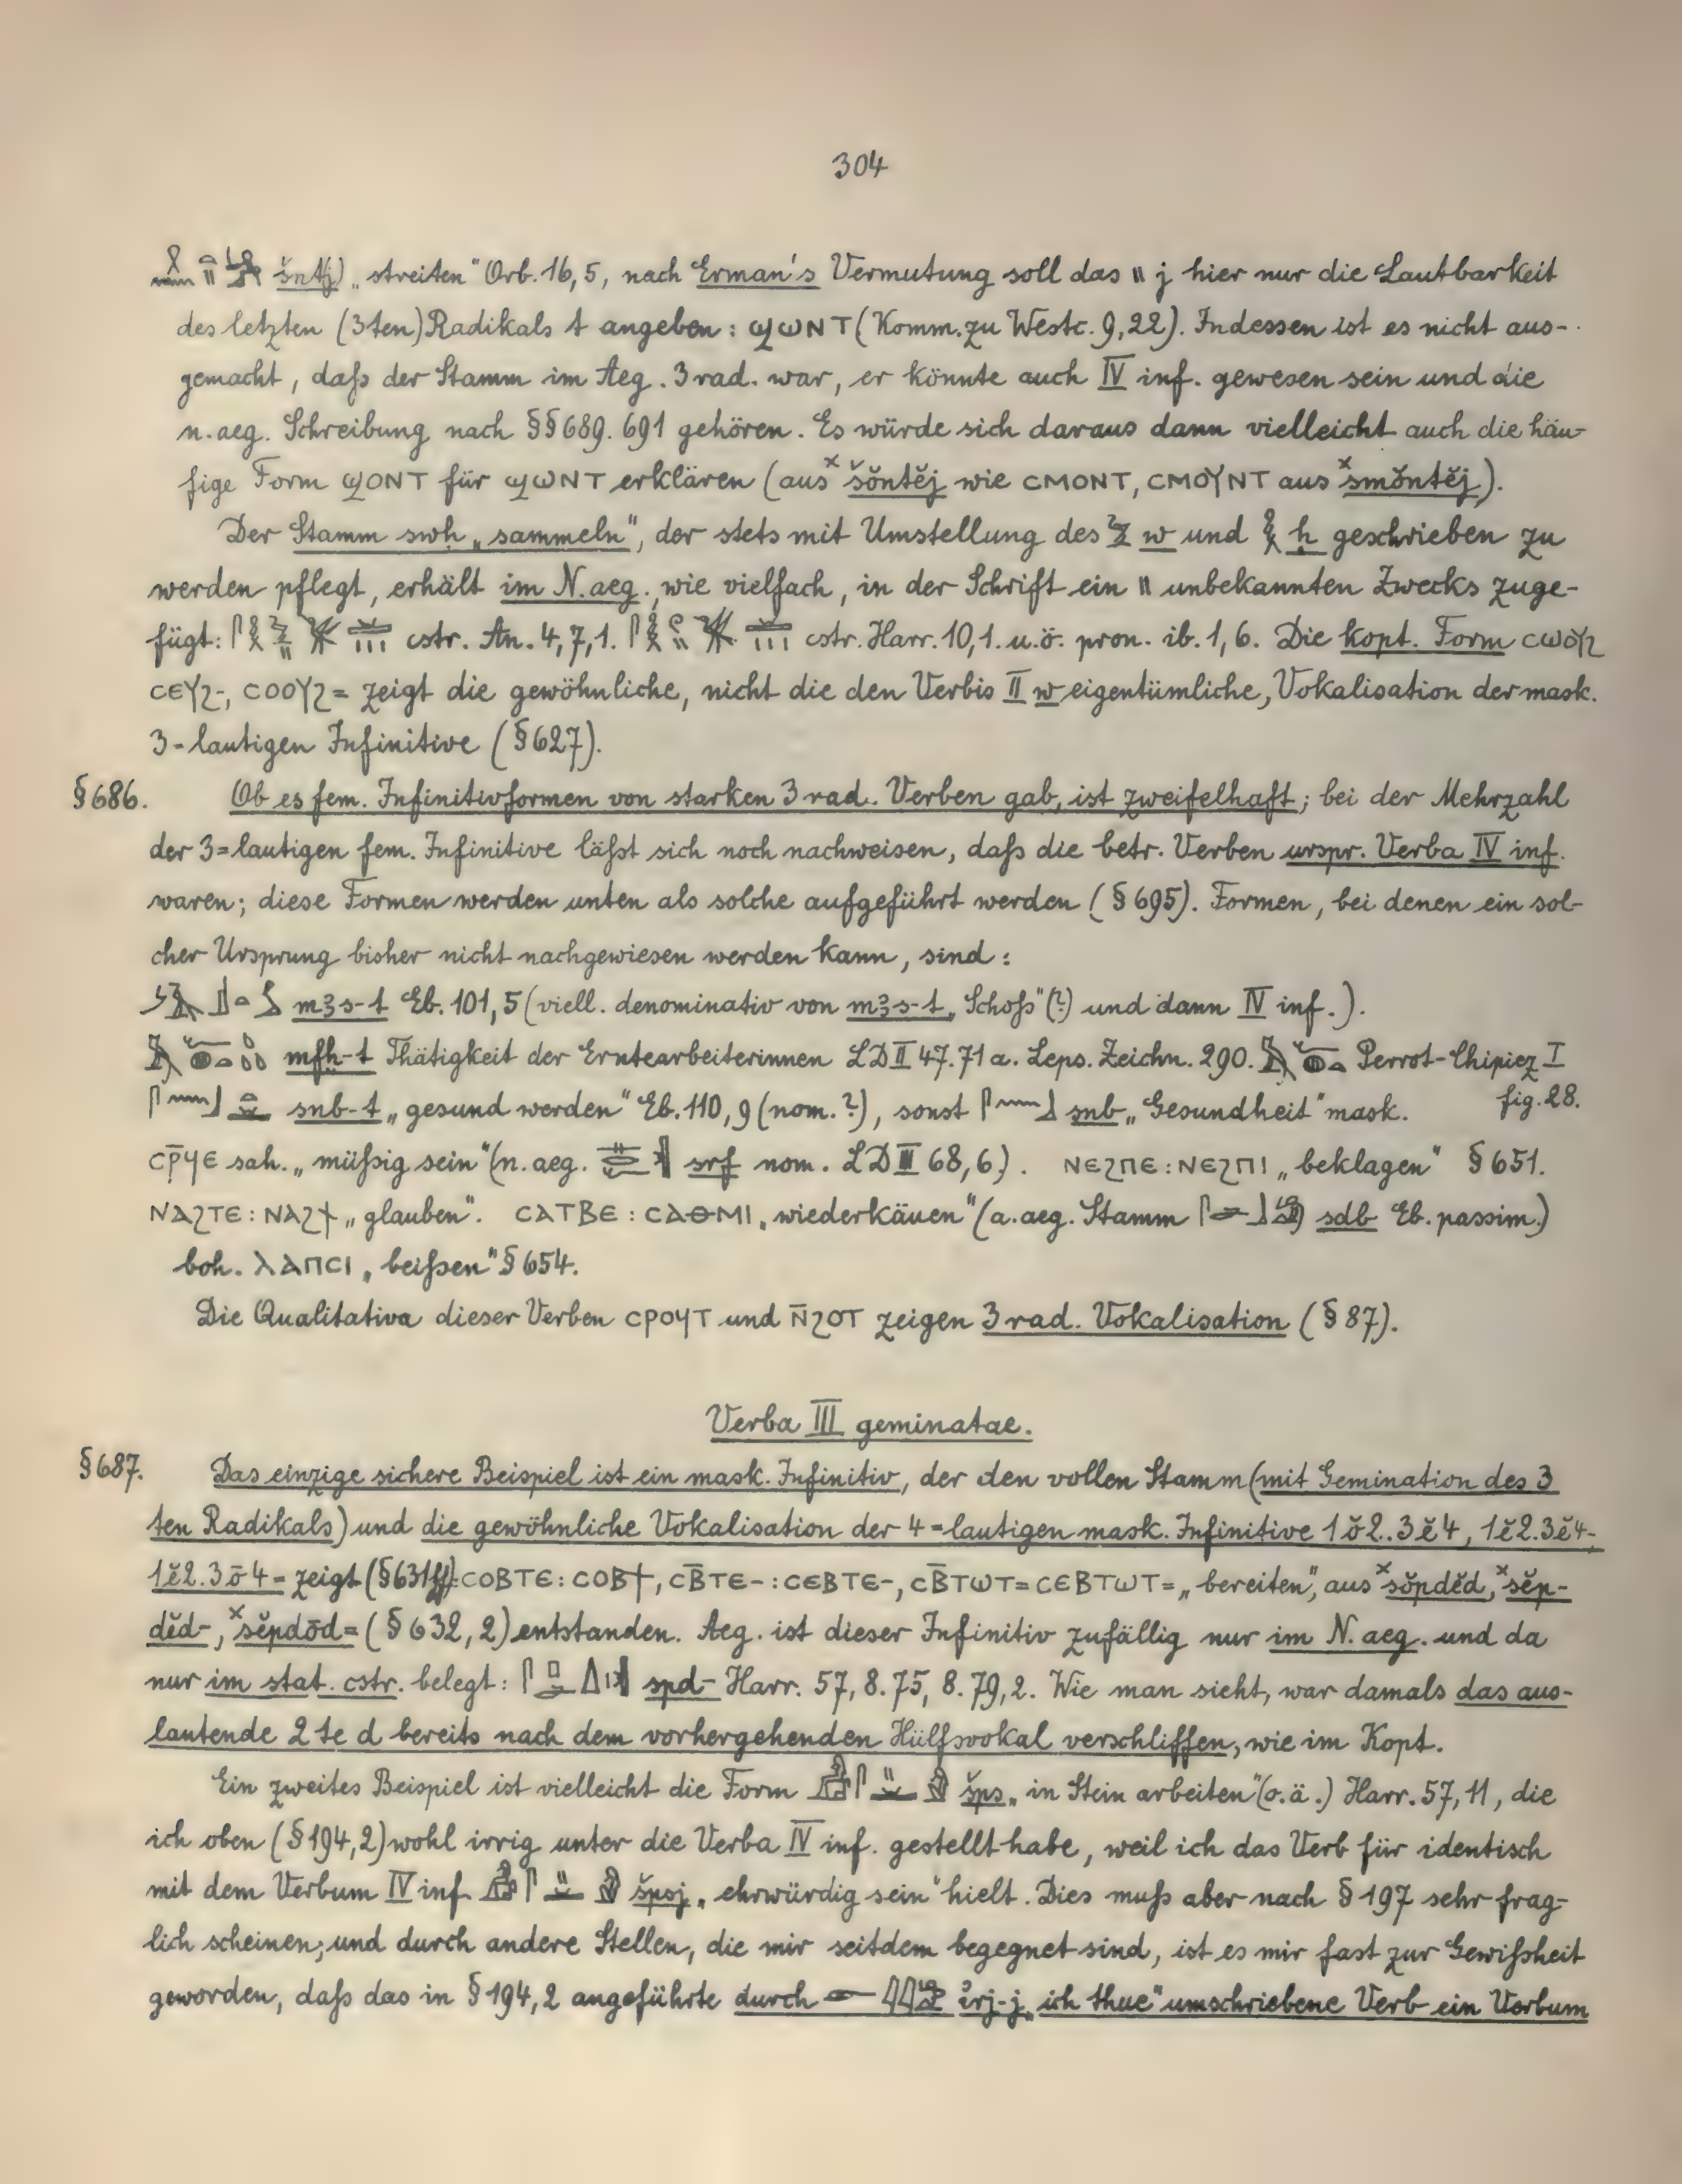 304
šnt(j) „streiten“ Orb. 16,5, nach Erman's Vermutung soll das 𓏭 j hier nur die Lautbarkeit
des letzten (3ten) Radikals t angeben: ϣⲱⲛⲧ (Komm. zu Westc. 9,22). Indessen ist es nicht aus-
gemacht, daß der Stamm im Aeg. 3rad. war, er könnte auch IV inf. gewesen sein und die
n.aeg. Schreibung nach §§ 689. 691 gehören. Es würde sich daraus dann vielleicht auch die häu-
fige Form ϣⲟⲛⲧ für ϣⲱⲛⲧ erklären (aus ˣšŏntĕj wie ⲥⲙⲟⲛⲧ, ⲥⲙⲟⲩⲛⲧ aus ˣsmŏntĕj).
Der Stamm swḥ „sammeln“, der stets mit Umstellung des 𓅱 w und 𓎛 ḥ geschrieben zu
werden pflegt, erhält im N.aeg., wie vielfach, in der Schrift ein 𓏭 unbekannten Zwecks zuge-
fügt: cstr. An. 4,7,1. cstr. Harr. 10,1. u.ö. pron. ib. 1,6. Die kopt. Form ⲥⲱⲟⲩϩ
ⲥⲉⲩϩ-, ⲥⲟⲟⲩϩ= zeigt die gewöhnliche, nicht die den Verbis II w eigentümliche, Vokalisation der mask.
3-lautigen Infinitive (§ 627).
§ 686. Ob es fem. Infinitivformen von starken 3rad. Verben gab, ist zweifelhaft; bei der Mehrzahl
der 3=lautigen fem. Infinitive läßt sich noch nachweisen, daß die betr. Verben urspr. Verba IV inf.
waren; diese Formen werden unten als solche aufgeführt werden (§ 695). Formen, bei denen ein sol-
cher Ursprung bisher nicht nachgewiesen werden kann, sind:
mꜣs-t Eb. 101,5 (viell. denominativ von mꜣs-t „Schoß“(?) und dann IV inf.).
mfḫ-t Thätigkeit der Erntearbeiterinnen LD II 47. 71a. Leps. Zeichn. 290. Perrot-Chipiez I
fig. 28.
snb-t „gesund werden“ Eb. 110,9 (nom.?), sonst snb „Gesundheit“ mask.
ⲥⲣ̄ϥⲉ sah. „müßig sein“ (n.aeg. srf nom. LD III 68,6). ⲛⲉϩⲡⲉ : ⲛⲉϩⲡⲓ „beklagen“ § 651.
ⲛⲁϩⲧⲉ : ⲛⲁϩϯ „glauben“. ⲥⲁⲧⲃⲉ : ⲥⲁⲑⲙⲓ „wiederkäuen“ (a.aeg. Stamm sdb Eb. passim.)
boh. ⲗⲁⲡⲥⲓ „beißen“ § 654.
Die Qualitativa dieser Verben ⲥⲣⲟϥⲧ und ⲛ̄ϩⲟⲧ zeigen 3rad. Vokalisation (§ 87).
Verba III geminatae.
§ 687. Das einzige sichere Beispiel ist ein mask. Infinitiv, der den vollen Stamm (mit Gemination des 3
ten Radikals) und die gewöhnliche Vokalisation der 4=lautigen mask. Infinitive 1ŏ2.3ĕ4, 1ĕ2.3ĕ4-,
1ĕ2.3ō4= zeigt (§ 631ff): ⲥⲟⲃⲧⲉ : ⲥⲟⲃϯ, ⲥⲃ̄ⲧⲉ- : ⲥⲉⲃⲧⲉ-, ⲥⲃ̄ⲧⲱⲧ= ⲥⲉⲃⲧⲱⲧ= „bereiten“, aus ˣsŏpdĕd, ˣsĕp-
dĕd-, ˣsĕpdōd= (§ 632,2) entstanden. Aeg. ist dieser Infinitiv zufällig nur im N.aeg. und da
nur im stat. cstr. belegt: spd- Harr. 57,8. 75,8. 79,2. Wie man sieht, war damals das aus-
lautende 2te d bereits nach dem vorhergehenden Hülfsvokal verschliffen, wie im Kopt.
Ein zweites Beispiel ist vielleicht die Form šps „in Stein arbeiten“ (o.ä.) Harr. 57,11, die
ich oben (§ 194,2) wohl irrig unter die Verba IV inf. gestellt habe, weil ich das Verb für identisch
mit dem Verbum IV inf. špsj „ehrwürdig sein“ hielt. Dies muß aber nach § 197 sehr frag-
lich scheinen; und durch andere Stellen, die mir seitdem begegnet sind, ist es mir fast zur Gewißheit
geworden, daß das in § 194,2 angeführte durch ꞽrj-j „ich thue“ umschriebene Verb ein Verbum